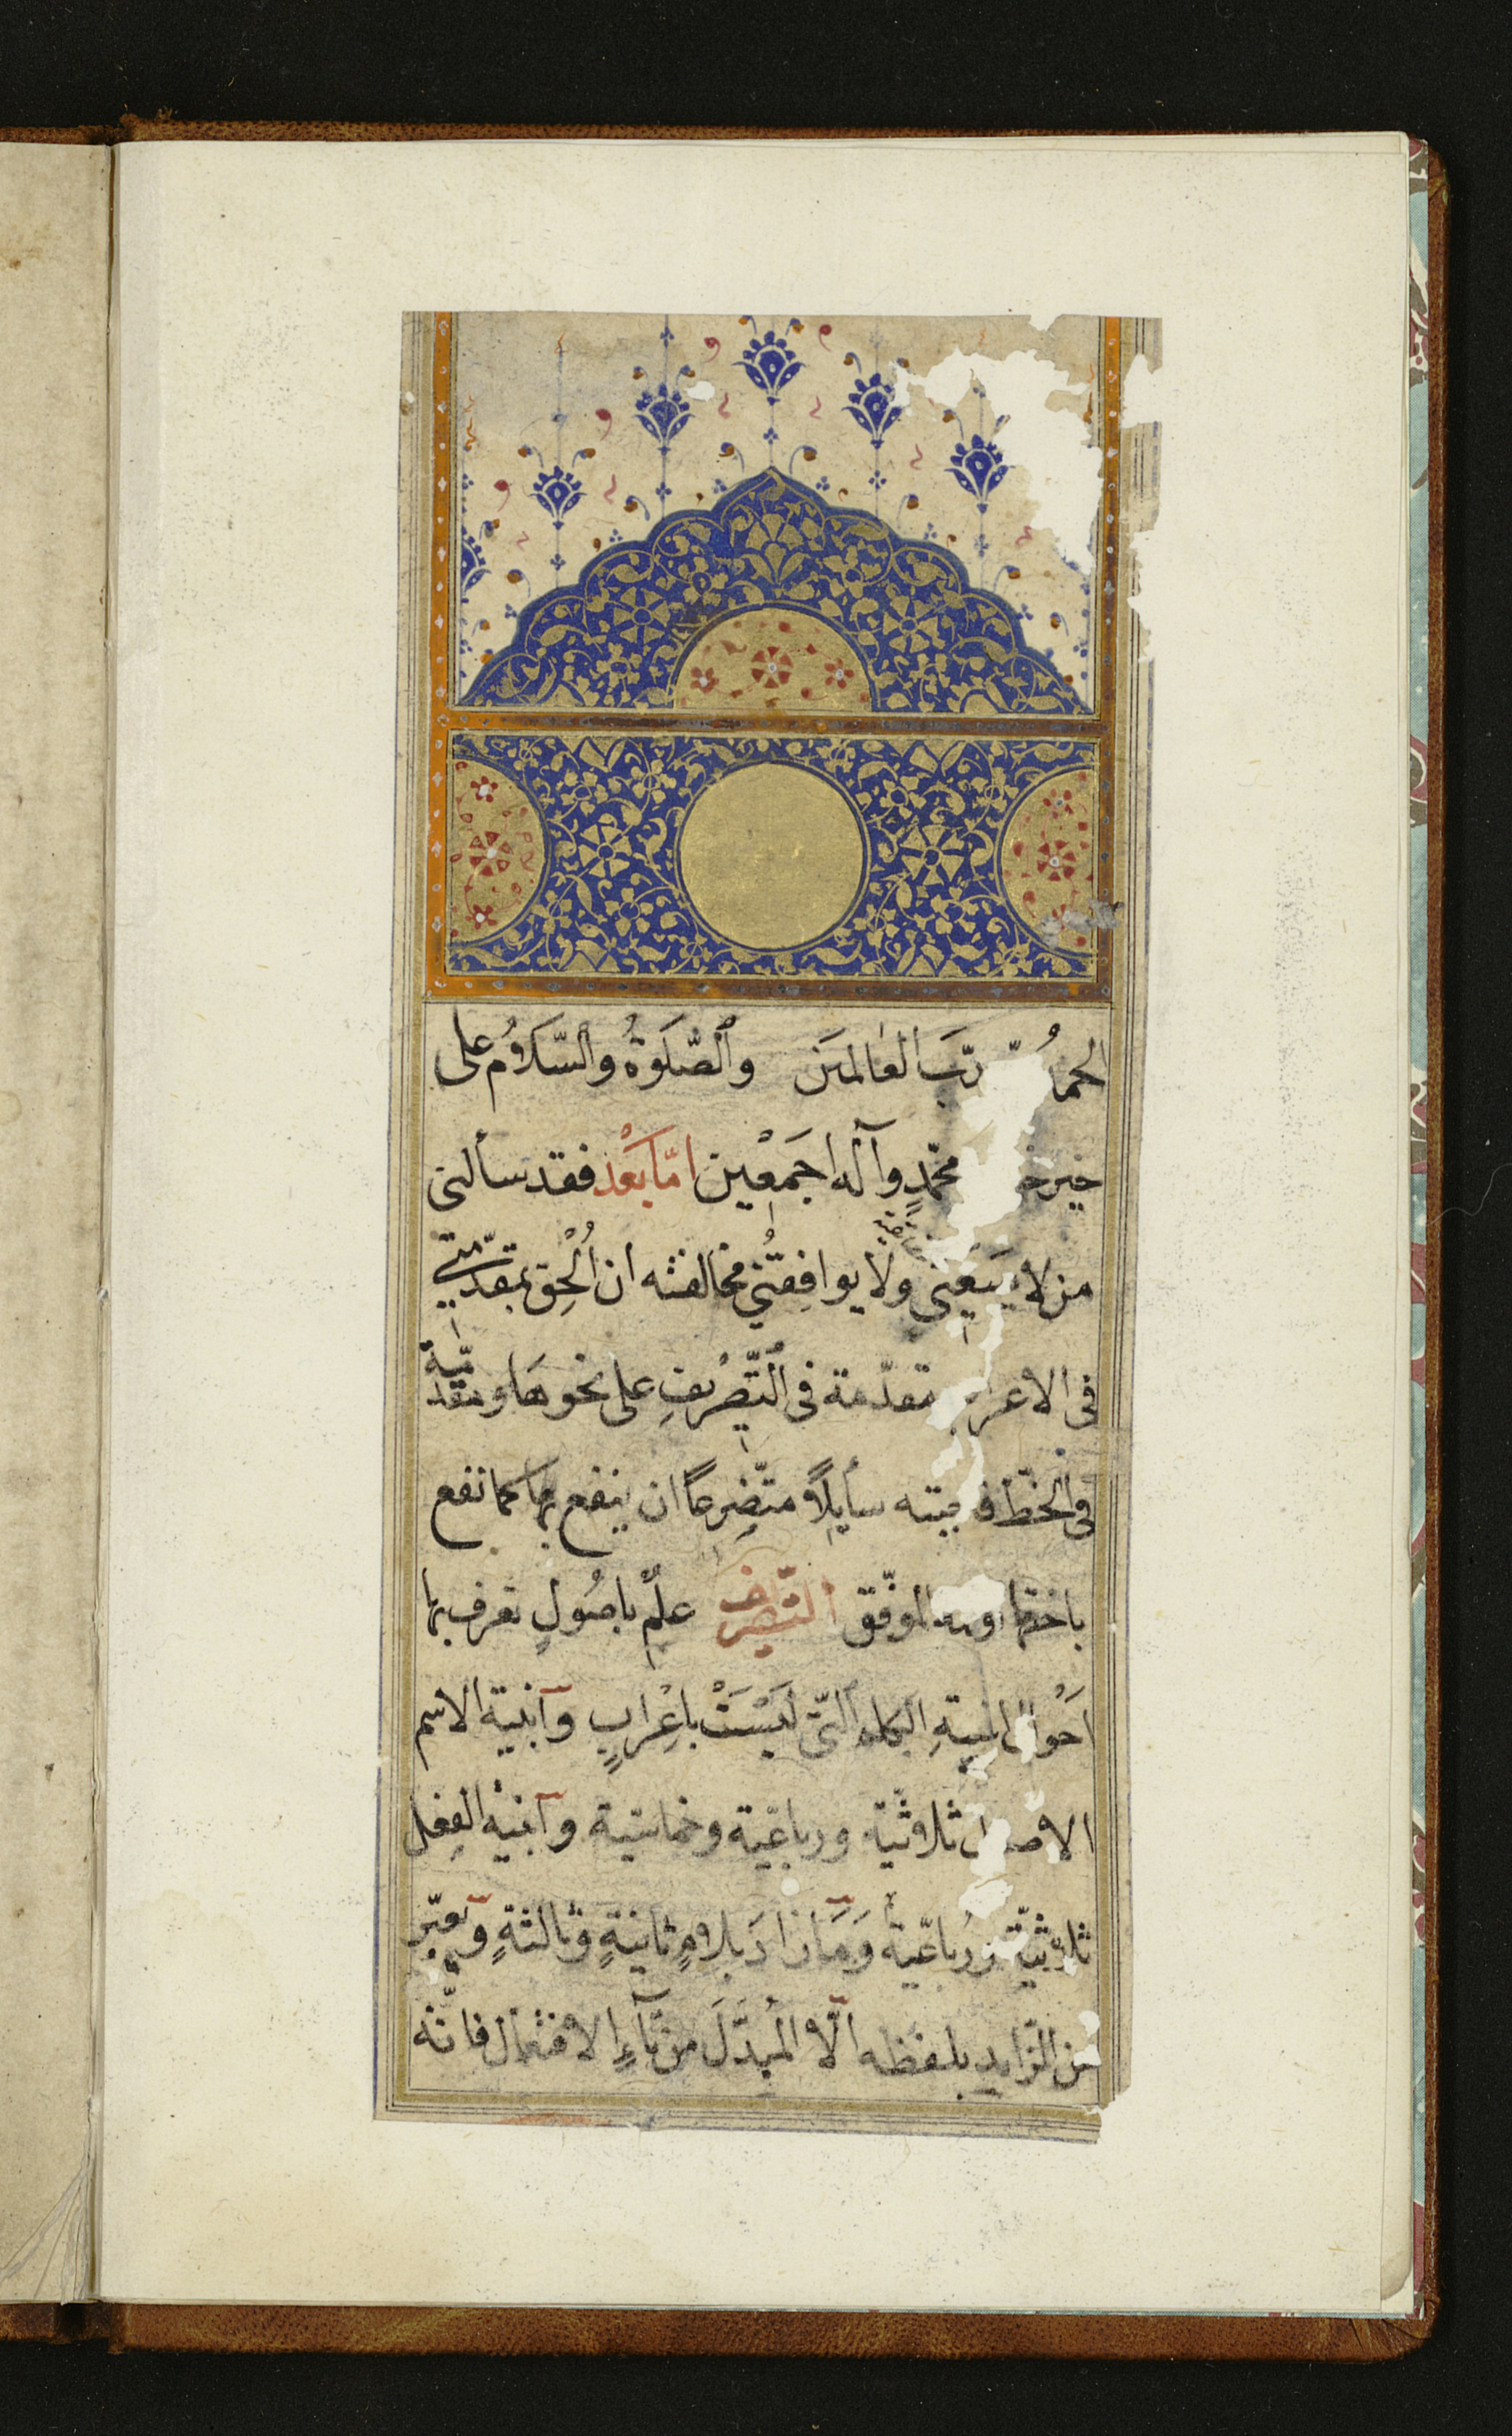 الحمدُ ربّ العالمين والصّلوةُ والسّلامُ على
خير محمّدٍ وآله اجمعين امّا بعد فقد سألنى
من لا يسعني ولا يوافقني مخالفته ان اُلحق بمقدّمتي
فى الاعراب مقدّمة فى التّصريفِ على نحوها ومقدّمة
فى الخطّ فاجبته سأيلاً متضرّعاً ان ينفع بها كما نفع
باختها والله الموفّق التّصريف علمٌ باصُولٍ تعرف بها
اَحْوال ابنيةِ الكلم الّتى لَيْسَتْ باِعْرابٍ وابنية الاسم
الاصول ثلاثيّة ورباعيّة وخماسيّة وابنية الفعل
ثلاثيّة ورُباعيّة وَمَا زادَ بلامٍ ثانيةٍ وثالثةٍ ويعبّر
عن الزّايد بلفظه الّا المُبدَلَ من تآءِ الافتعال فانّه